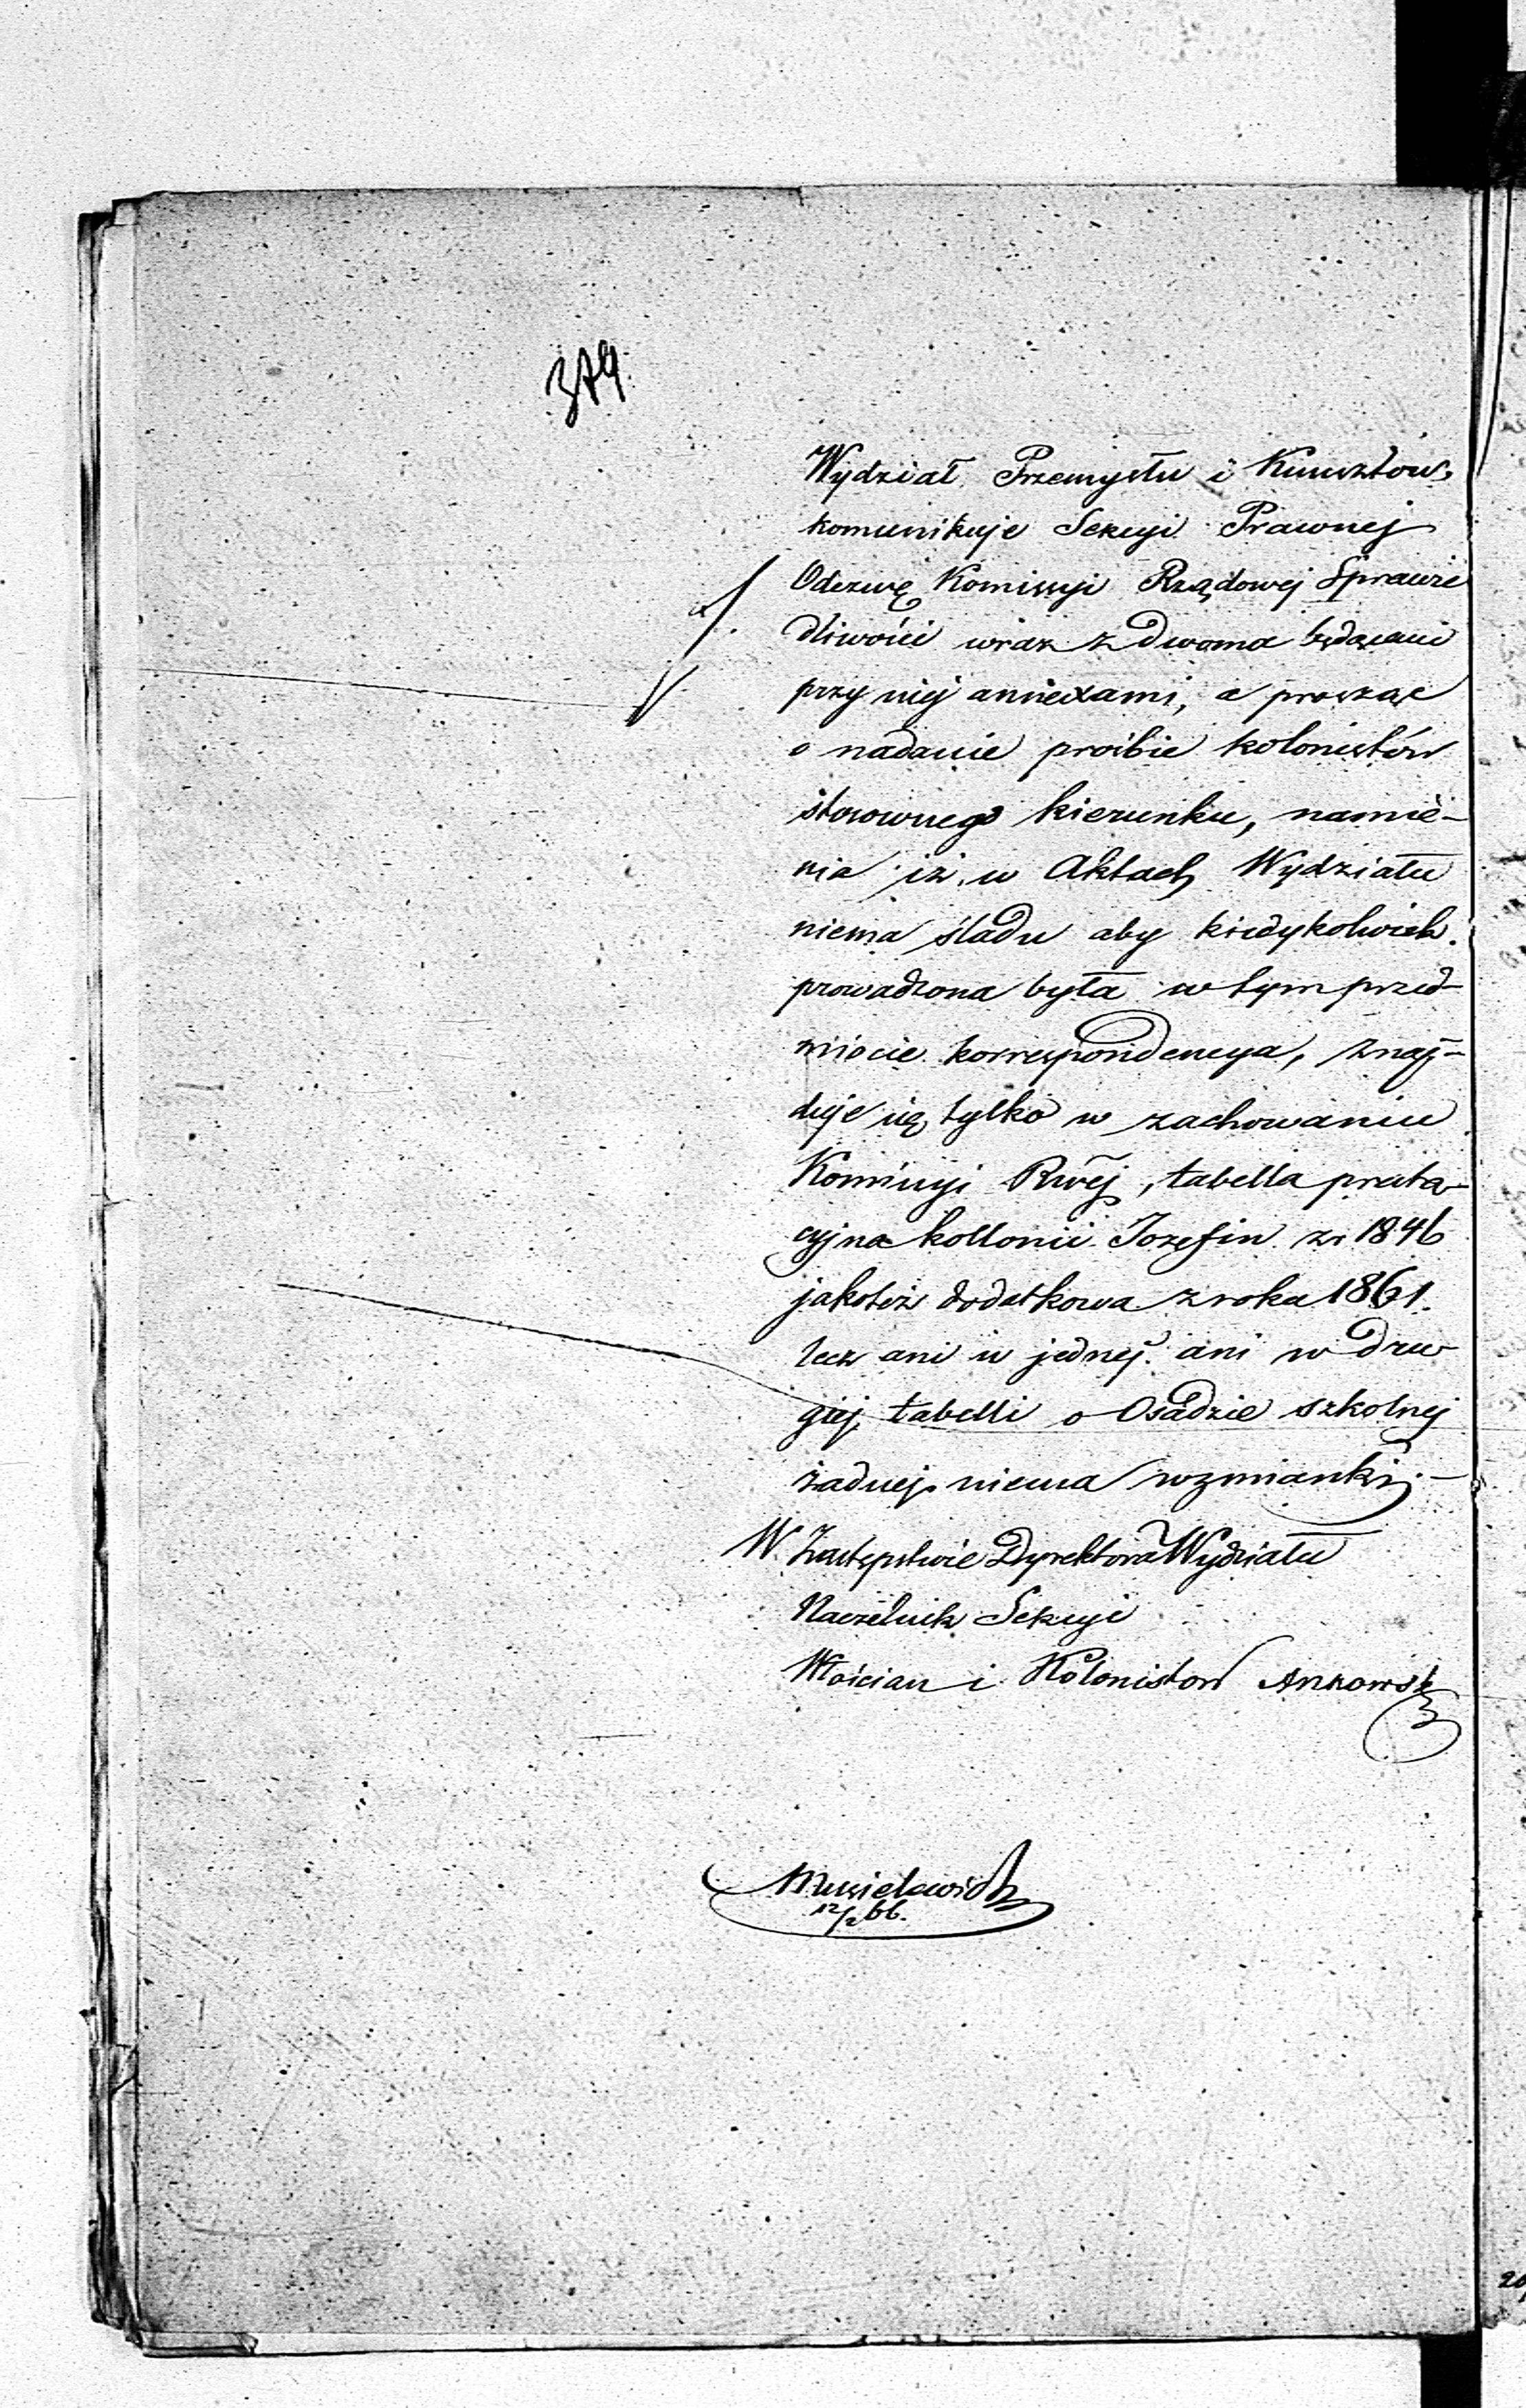 379.
Wydział Przemysłu i Kunsztów
komunikuje Sekcyi Prawnej
Odezwę Komissyi Rządowej Sprawie
dliwości wraz z dwoma będącemi
przy niej annexami, a prosząc
o nadanie prośbie kolonistów
stosownego kierunku, namie-
nia iż w Aktach Wydziału
niema śladu aby kiedykolwiek
prowadzona była w tym przed-
miocie korrespondencya, znaj-
duje się tylko w zachowaniu
Komissyi Rwej, tabella presta-
cyjna kollonii Jozefin z r 1846
jakoteż dodatkowa z roku 1861.
lecz ani w jednej ani w dru-
giej tabelli o Osadzie szkolnej
żadnej niema wzmianki.—
W Zastępstwie Dyrektora Wydziału
Naczelnik Sekcyi
Włościan i Kolonistow
12/2 66.